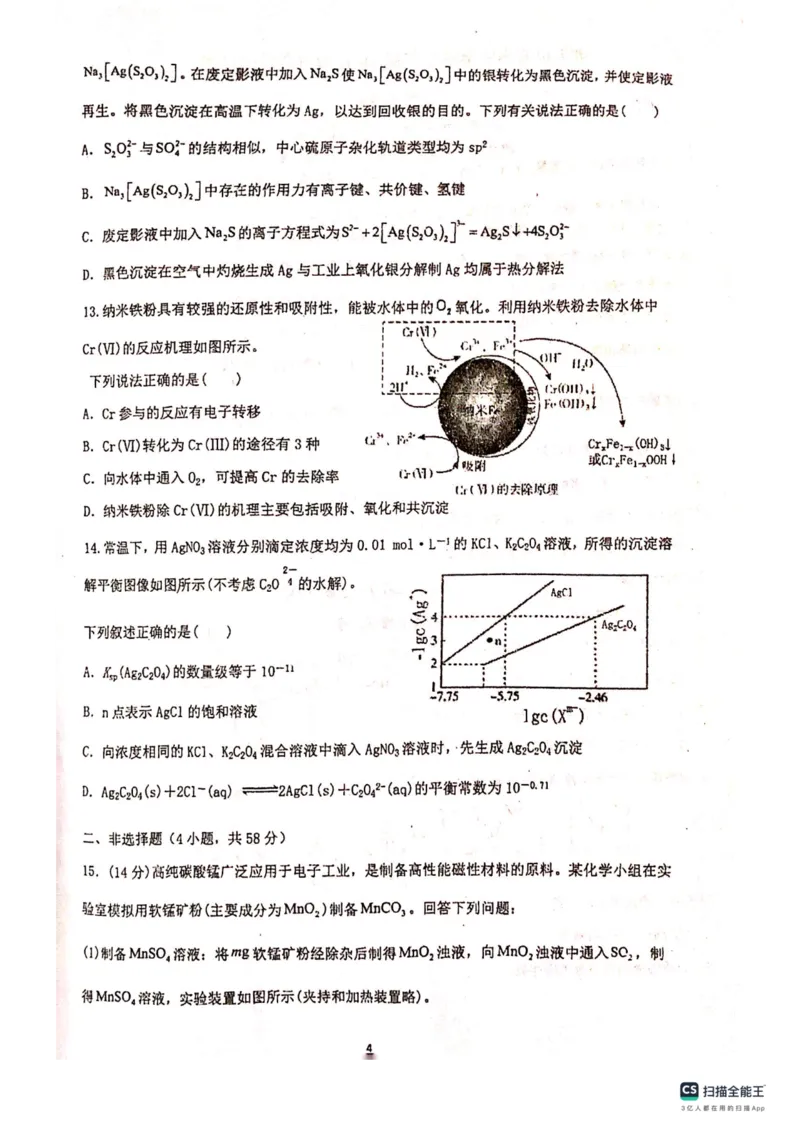 Na₃[Ag(S₂O₃)₂]。在废定影液中加入Na₂S使Na₃[Ag(S₂O₃)₂]中的银转化为黑色沉淀,并使定影液
再生。将黑色沉淀在高温下转化为Ag,以达到回收银的目的。下列有关说法正确的是( )
A. S₂O₃²⁻与SO₄²⁻的结构相似,中心硫原子杂化轨道类型均为sp²
B. Na₃[Ag(S₂O₃)₂]中存在的作用力有离子键、共价键、氢键
C. 废定影液中加入Na₂S的离子方程式为S²⁻+2[Ag(S₂O₃)₂]³⁻=Ag₂S↓+4S₂O₃²⁻
D. 黑色沉淀在空气中灼烧生成Ag与工业上氧化银分解制Ag均属于热分解法
13.纳米铁粉具有较强的还原性和吸附性,能被水体中的O₂氧化。利用纳米铁粉去除水体中
Cr(Ⅵ)的反应机理如图所示。
下列说法正确的是( )
A. Cr参与的反应有电子转移
B. Cr(Ⅵ)转化为Cr(Ⅲ)的途径有3种
C. 向水体中通入O₂,可提高Cr的去除率
D. 纳米铁粉除Cr(Ⅵ)的机理主要包括吸附、氧化和共沉淀
Cr(Ⅵ)
Cr³⁺、Fe³⁺
OH⁻ H₂O
H₂、Fe²⁺
2H⁺
Cr(OH)₃↓
Fe(OH)₃↓
纳米Fe
Cr³⁺、Fe²⁺
吸附
Cr(Ⅵ)
CrₓFe₁₋ₓ(OH)₃↓
或CrₓFe₁₋ₓOOH↓
Cr(Ⅵ)的去除原理
14.常温下,用AgNO₃溶液分别滴定浓度均为0.01 mol·L⁻¹的KCl、K₂C₂O₄溶液,所得的沉淀溶
解平衡图像如图所示(不考虑C₂O₄²⁻的水解)。
下列叙述正确的是( )
A. Kₛₚ(Ag₂C₂O₄)的数量级等于10⁻¹¹
B. n点表示AgCl的饱和溶液
C. 向浓度相同的KCl、K₂C₂O₄混合溶液中滴入AgNO₃溶液时,先生成Ag₂C₂O₄沉淀
D. Ag₂C₂O₄(s)+2Cl⁻(aq) ⇌2AgCl(s)+C₂O₄²⁻(aq)的平衡常数为10⁻⁰·⁷¹
-lgc(Ag⁺)
AgCl
Ag₂C₂O₄
4
3
n
2
1
-7.75 -5.75 -2.46
lgc(Xᵐ⁻)
二、非选择题(4小题,共58分)
15. (14分)高纯碳酸锰广泛应用于电子工业,是制备高性能磁性材料的原料。某化学小组在实
验室模拟用软锰矿粉(主要成分为MnO₂)制备MnCO₃。回答下列问题:
(1)制备MnSO₄溶液:将mg软锰矿粉经除杂后制得MnO₂浊液,向MnO₂浊液中通入SO₂,制
得MnSO₄溶液,实验装置如图所示(夹持和加热装置略)。
4
CS 扫描全能王
3亿人都在用的扫描App